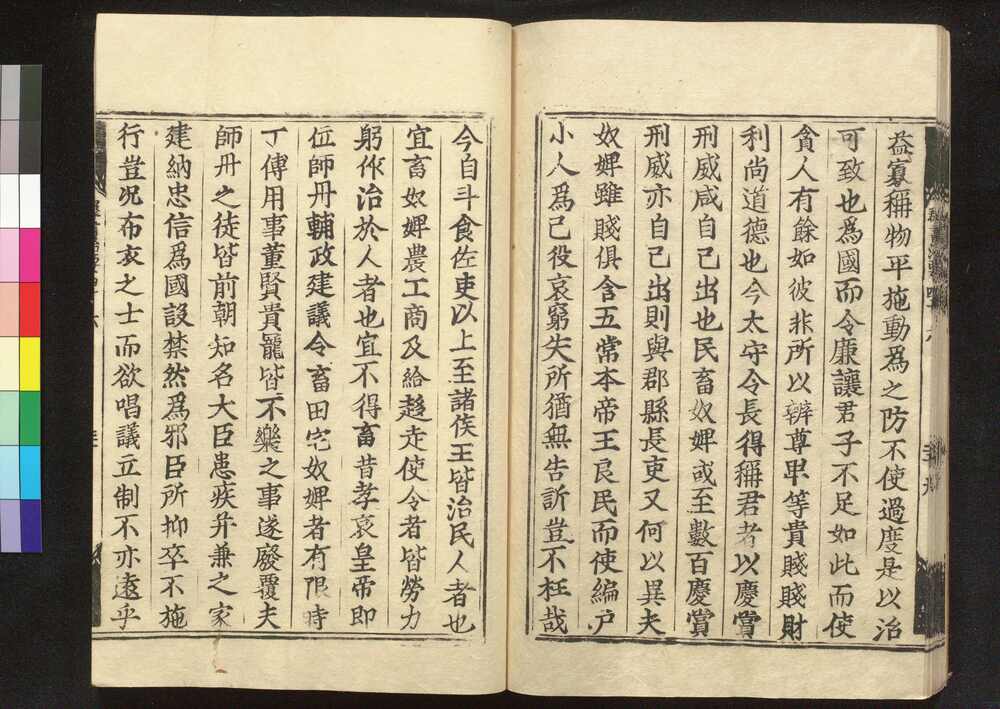 益寡稱物平施動爲之防不使過度是以治
可致也爲國而令廉讓君子不足如此而使
貪人有餘如彼非所以辨尊卑等貴賤賤財
利尚道德也今太守令長得稱君者以慶賞
刑威咸自己出也民畜奴婢或至數百慶賞
刑威亦自己出則與郡縣長吏又何以異夫
奴婢雖賤俱含五常本帝王良民而使編户
小人爲己役哀窮失所猶無告訴豈不枉哉
今自斗食佐吏以上至諸侯王皆治民人者也
宜畜奴婢農工商及給趍走使令者皆勞力
躬作治於人者也宜不得畜昔孝哀皇帝即
位師丹輔政建議令畜田宅奴婢者有限時
丁傅用事董賢貴寵皆不樂之事遂廢覆夫
師丹之徒皆前朝知名大臣患疾并兼之家
建納忠信爲國設禁然爲邪臣所抑卒不施
行豈況布衣之士而欲唱議立制不亦遠乎